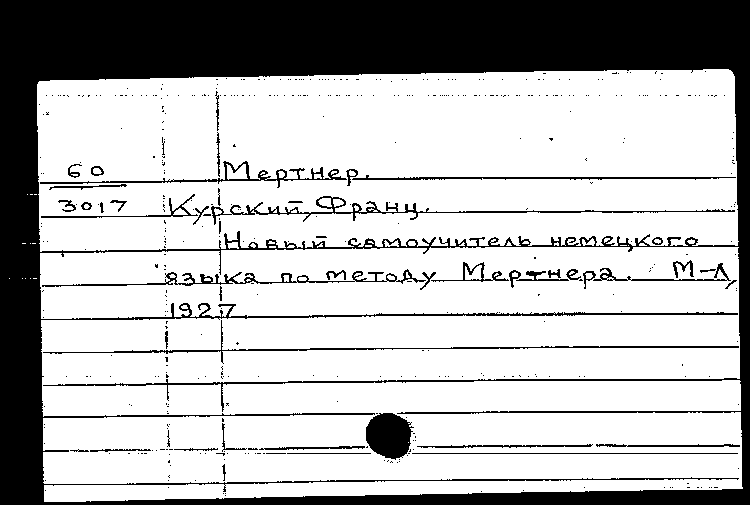 60 Мертнер.
3017 Курский, Франц.
Новый самоучитель немецкого
языка по методу Мертнера. М-Л,
1927.